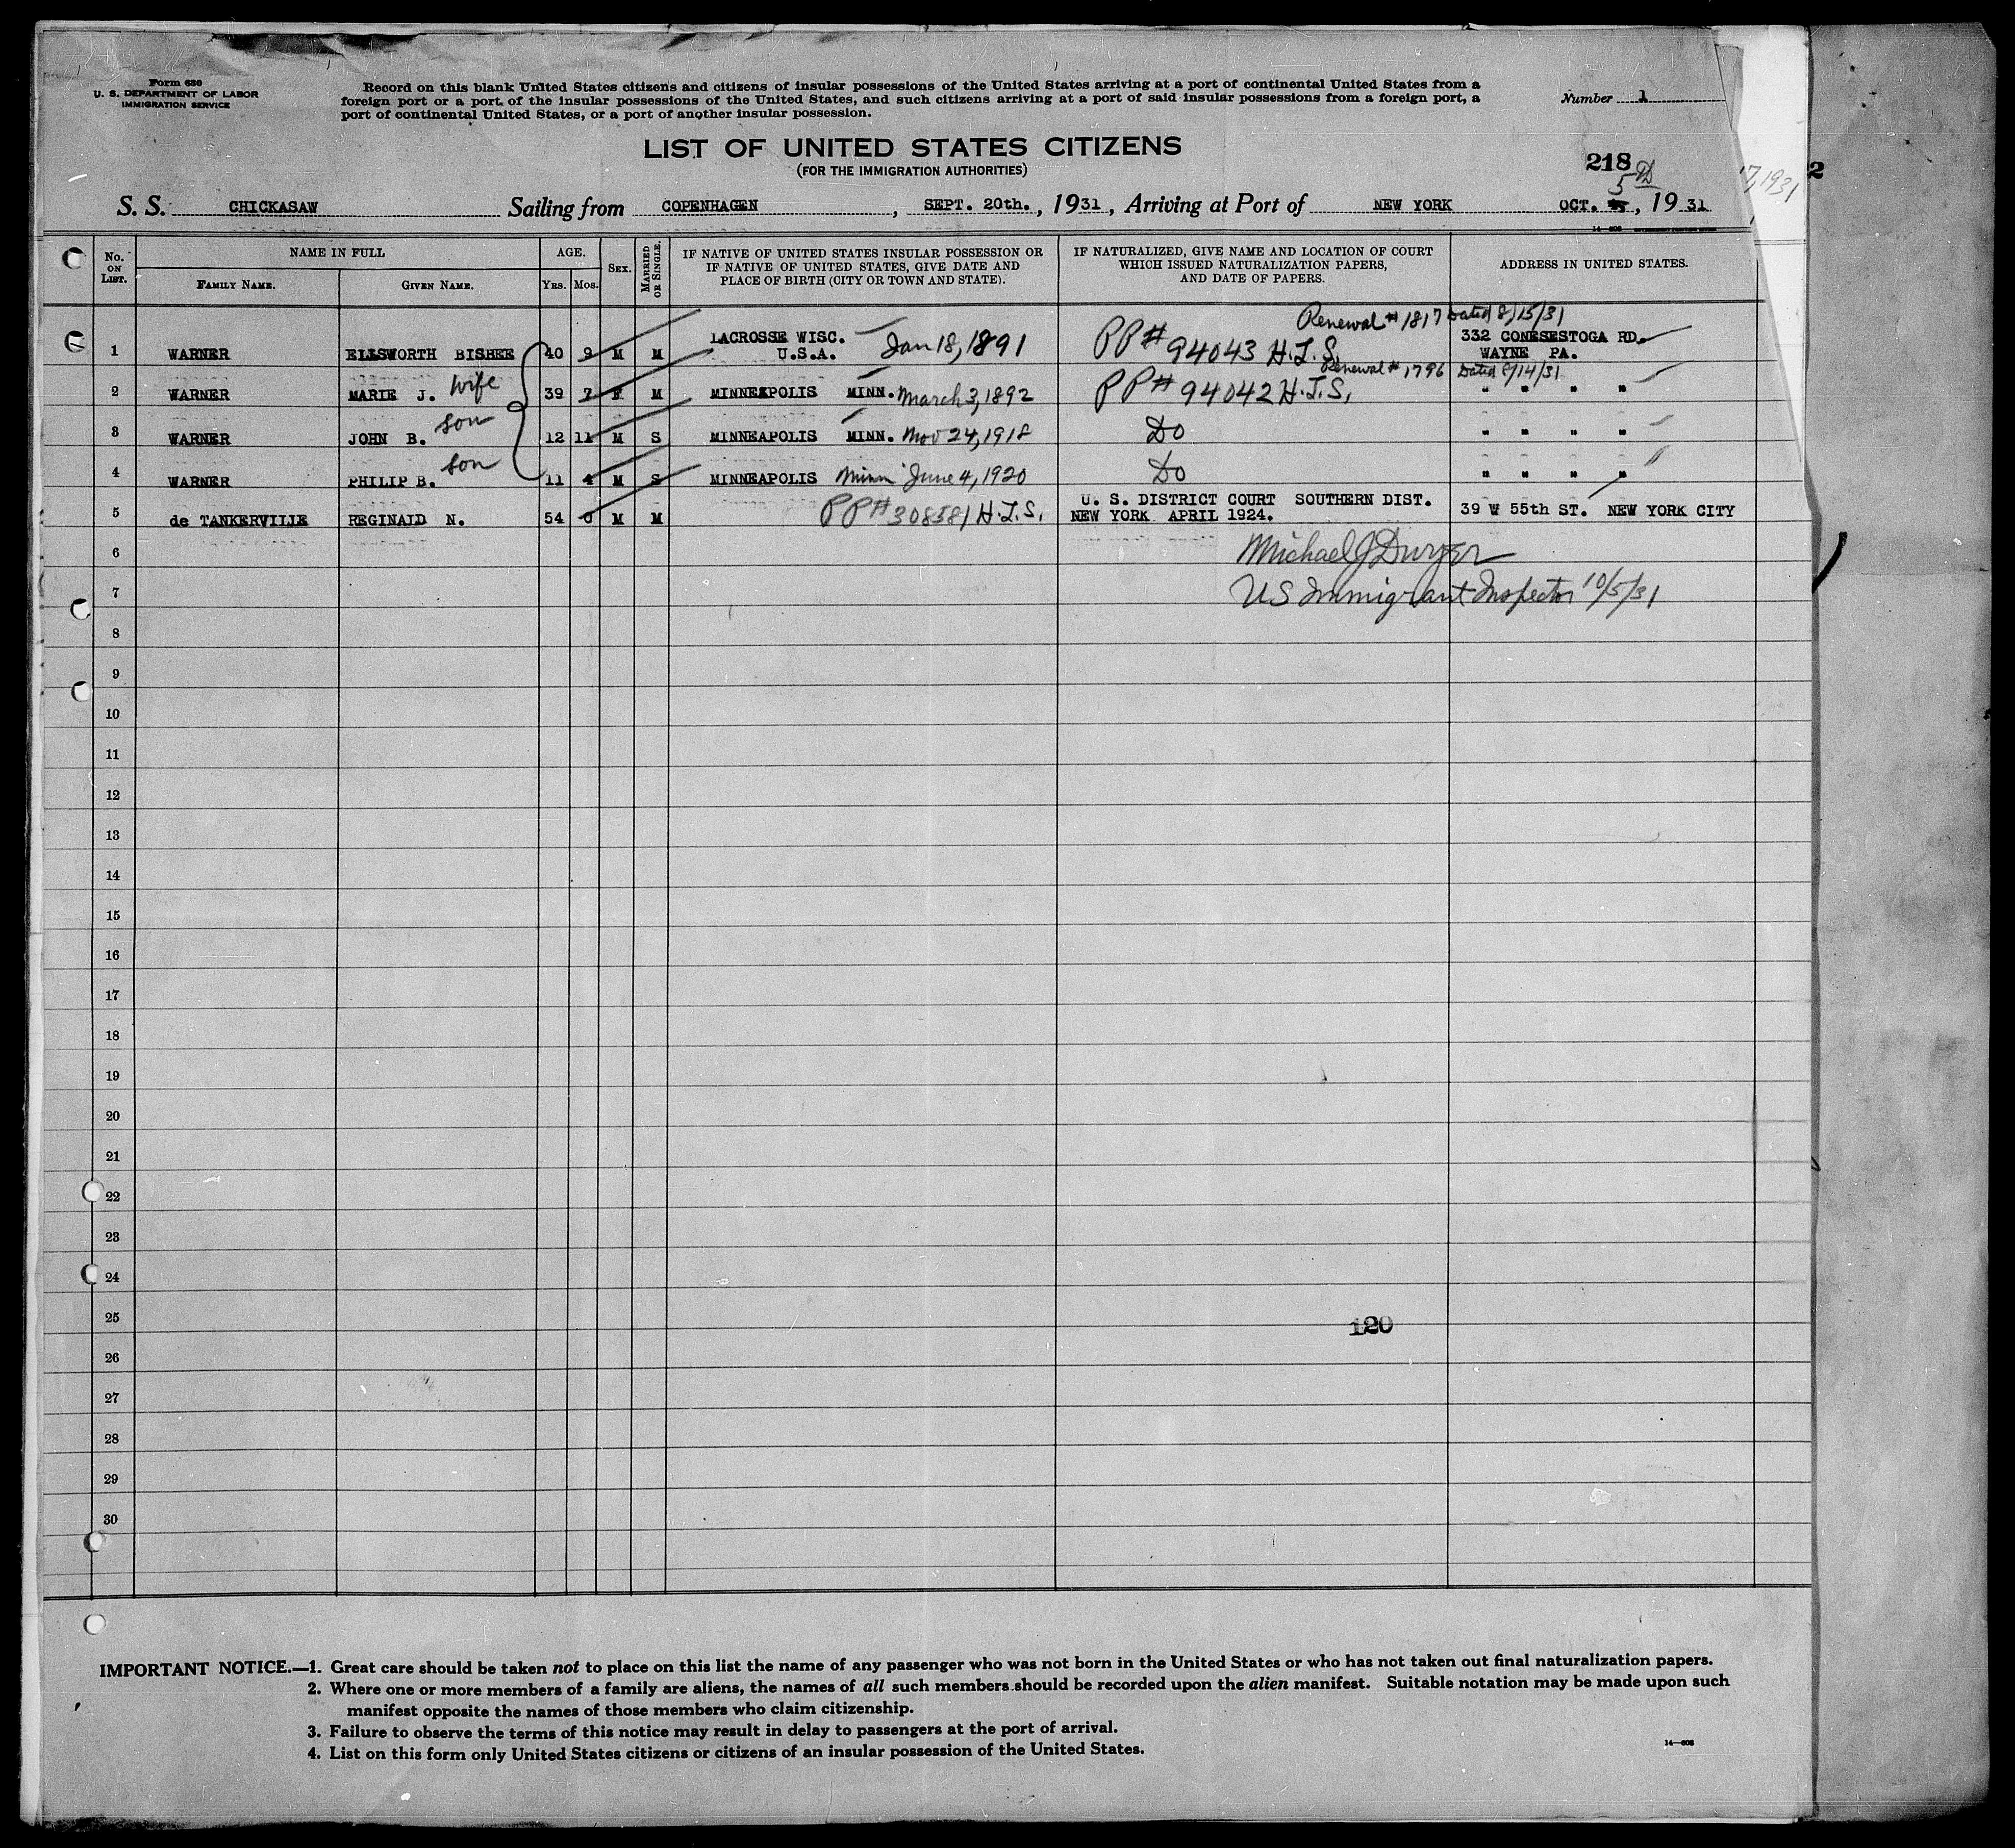 Form 630
U. S. DEPARTMENT OF LABOR
IMMIGRATION SERVICE
Record on this blank United States citizens and citizens of insular possessions of the United States arriving at a port of continental United States from a
foreign port or a port of the insular possessions of the United States, and such citizens arriving at a port of said insular possessions from a foreign port, a
port of continental United States, or a port of another insular possession.
Number 1
LIST OF UNITED STATES CITIZENS
(FOR THE IMMIGRATION AUTHORITIES)
218
2
5th
7, 1931
S. S. CHICKASAW Sailing from COPENHAGEN, SEPT. 20th., 1931, Arriving at Port of NEW YORK OCT. , 1931
14-608
No. ON LIST.
NAME IN FULL
FAMILY NAME. GIVEN NAME.
AGE.
YRS. MOS.
SEX.
MARRIED OR SINGLE.
IF NATIVE OF UNITED STATES INSULAR POSSESSION OR
IF NATIVE OF UNITED STATES, GIVE DATE AND
PLACE OF BIRTH (CITY OR TOWN AND STATE).
IF NATURALIZED, GIVE NAME AND LOCATION OF COURT
WHICH ISSUED NATURALIZATION PAPERS,
AND DATE OF PAPERS.
ADDRESS IN UNITED STATES.
Renewal # 1817 Dated 8/15/31
LACROSSE WISC. 332 CONESESTOGA RD.
1 WARNER ELLSWORTH BISBEE 40 9 M M U.S.A. Jan 18, 1891 PP# 94043 H.I.S. WAYNE PA.
Renewal # 1796 Dated 8/14/31
2 WARNER MARIE J. wife 39 7 F M MINNEAPOLIS MINN. March 3, 1892 PP# 94042 H.I.S. " " " "
3 WARNER JOHN B. son 12 11 M S MINNEAPOLIS MINN. Nov 24, 1918 Do " " " "
4 WARNER PHILIP B. son 11 4 M S MINNEAPOLIS Minn June 4, 1920 Do " " " "
U. S. DISTRICT COURT SOUTHERN DIST.
5 de TANKERVILLE REGINALD N. 54 0 M M PP# 308581 H.I.S. NEW YORK APRIL 1924. 39 W 55th ST. NEW YORK CITY
6 Michael J Dwyer
7 US Immigrant Inspector 10/5/31
8
9
10
11
12
13
14
15
16
17
18
19
20
21
22
23
24
25
120
26
27
28
29
30
IMPORTANT NOTICE.—1. Great care should be taken not to place on this list the name of any passenger who was not born in the United States or who has not taken out final naturalization papers.
2. Where one or more members of a family are aliens, the names of all such members should be recorded upon the alien manifest. Suitable notation may be made upon such
manifest opposite the names of those members who claim citizenship.
3. Failure to observe the terms of this notice may result in delay to passengers at the port of arrival.
4. List on this form only United States citizens or citizens of an insular possession of the United States.
14-608